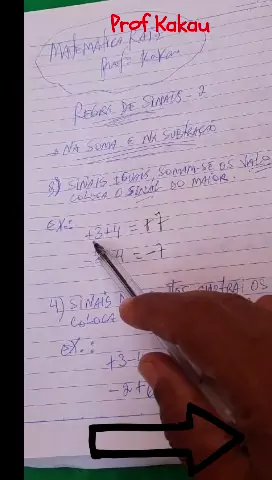 Prof Kakau
MATEMÁTICA RAIZ
Profª KAKAU
REGRAS DE SINAIS - 2
NA SOMA E NA SUBTRAÇÃO
3) SINAIS IGUAIS, SOMAM-SE OS VALO
COLOCA O SINAL DO MAIOR.
EX.:
+3+4 = +7
4 = -7
4) SINAIS
OS
COLOCA
EX.:
+3-
-2+6